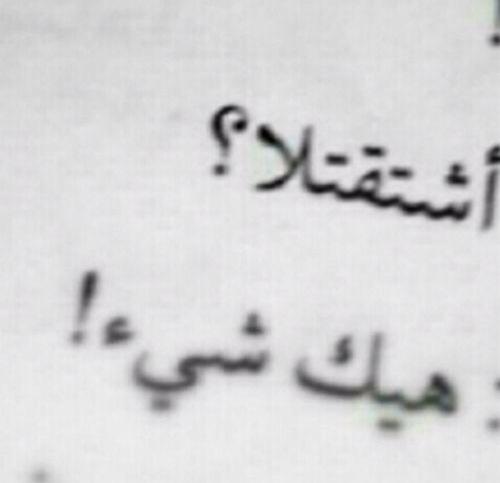 أشتقتلا؟
: هيك شيء!